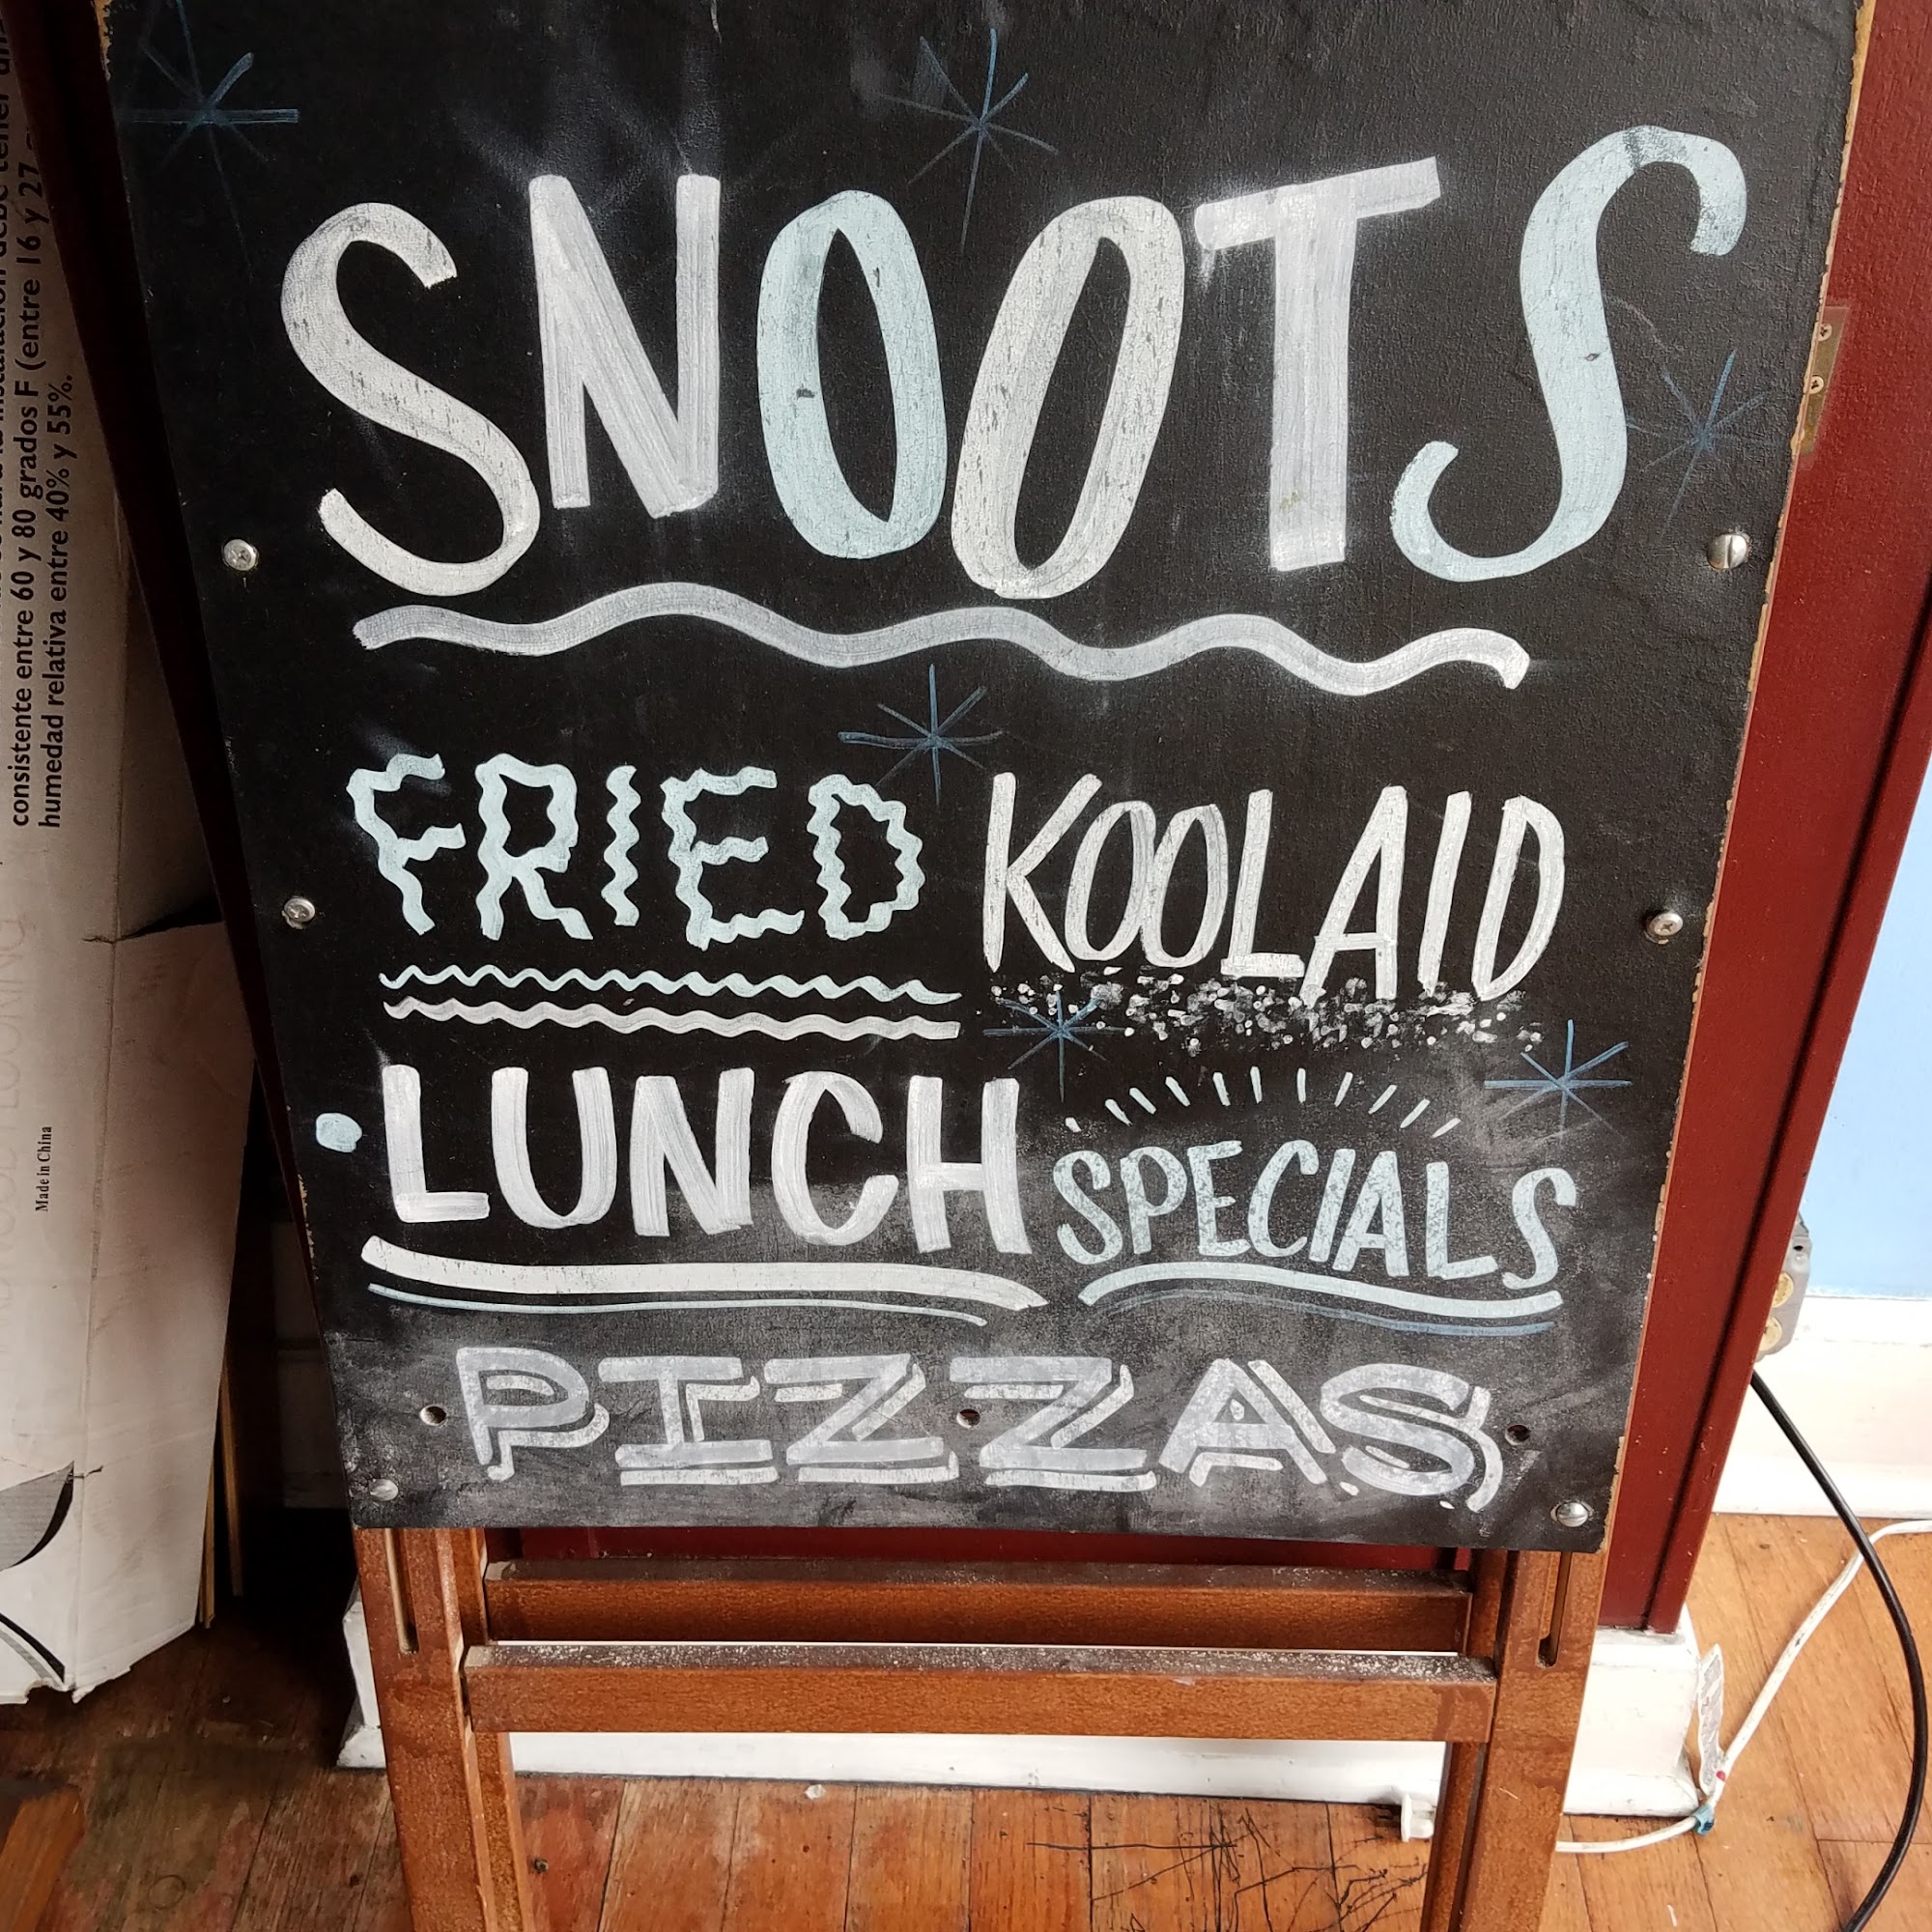 SNOOTS
FRIED KOOLAID
LUNCH SPECIALS
PIZZAS
consistente entre 60 y 80 grados F (entre 16 y 27
humedad relativa entre 40% y 55%.
Made in China